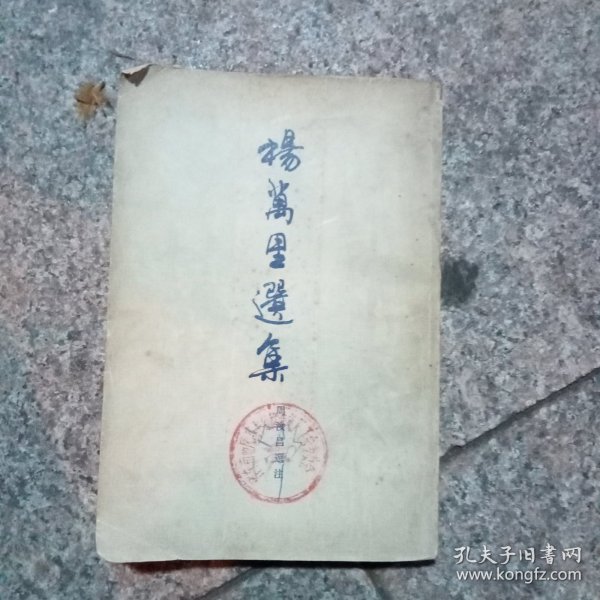 楊萬里選集
周汝昌選注
孔夫子旧書网
www.kongfz.com